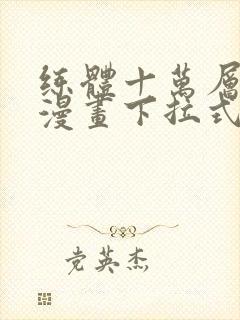 练體十萬層
漫畫下拉式
党英杰